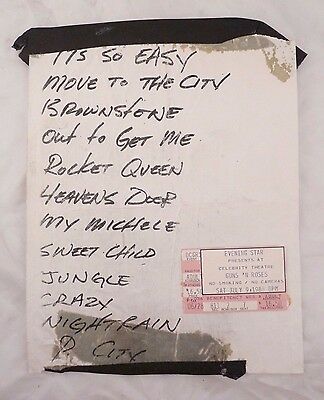 ITS SO EASY
MOVE TO THE CITY
BROWNSTONE
OUT TO GET ME
ROCKET QUEEN
HEAVENS DOOR
MY MICHELE
SWEET CHILD
JUNGLE
CRAZY
NIGHTRAIN
P. CITY
EVENING STAR
PRESENTS AT
CELEBRITY THEATRE
GUNS 'N ROSES
NO SMOKING/NO CAMERAS
SAT JULY 9,198 8PM